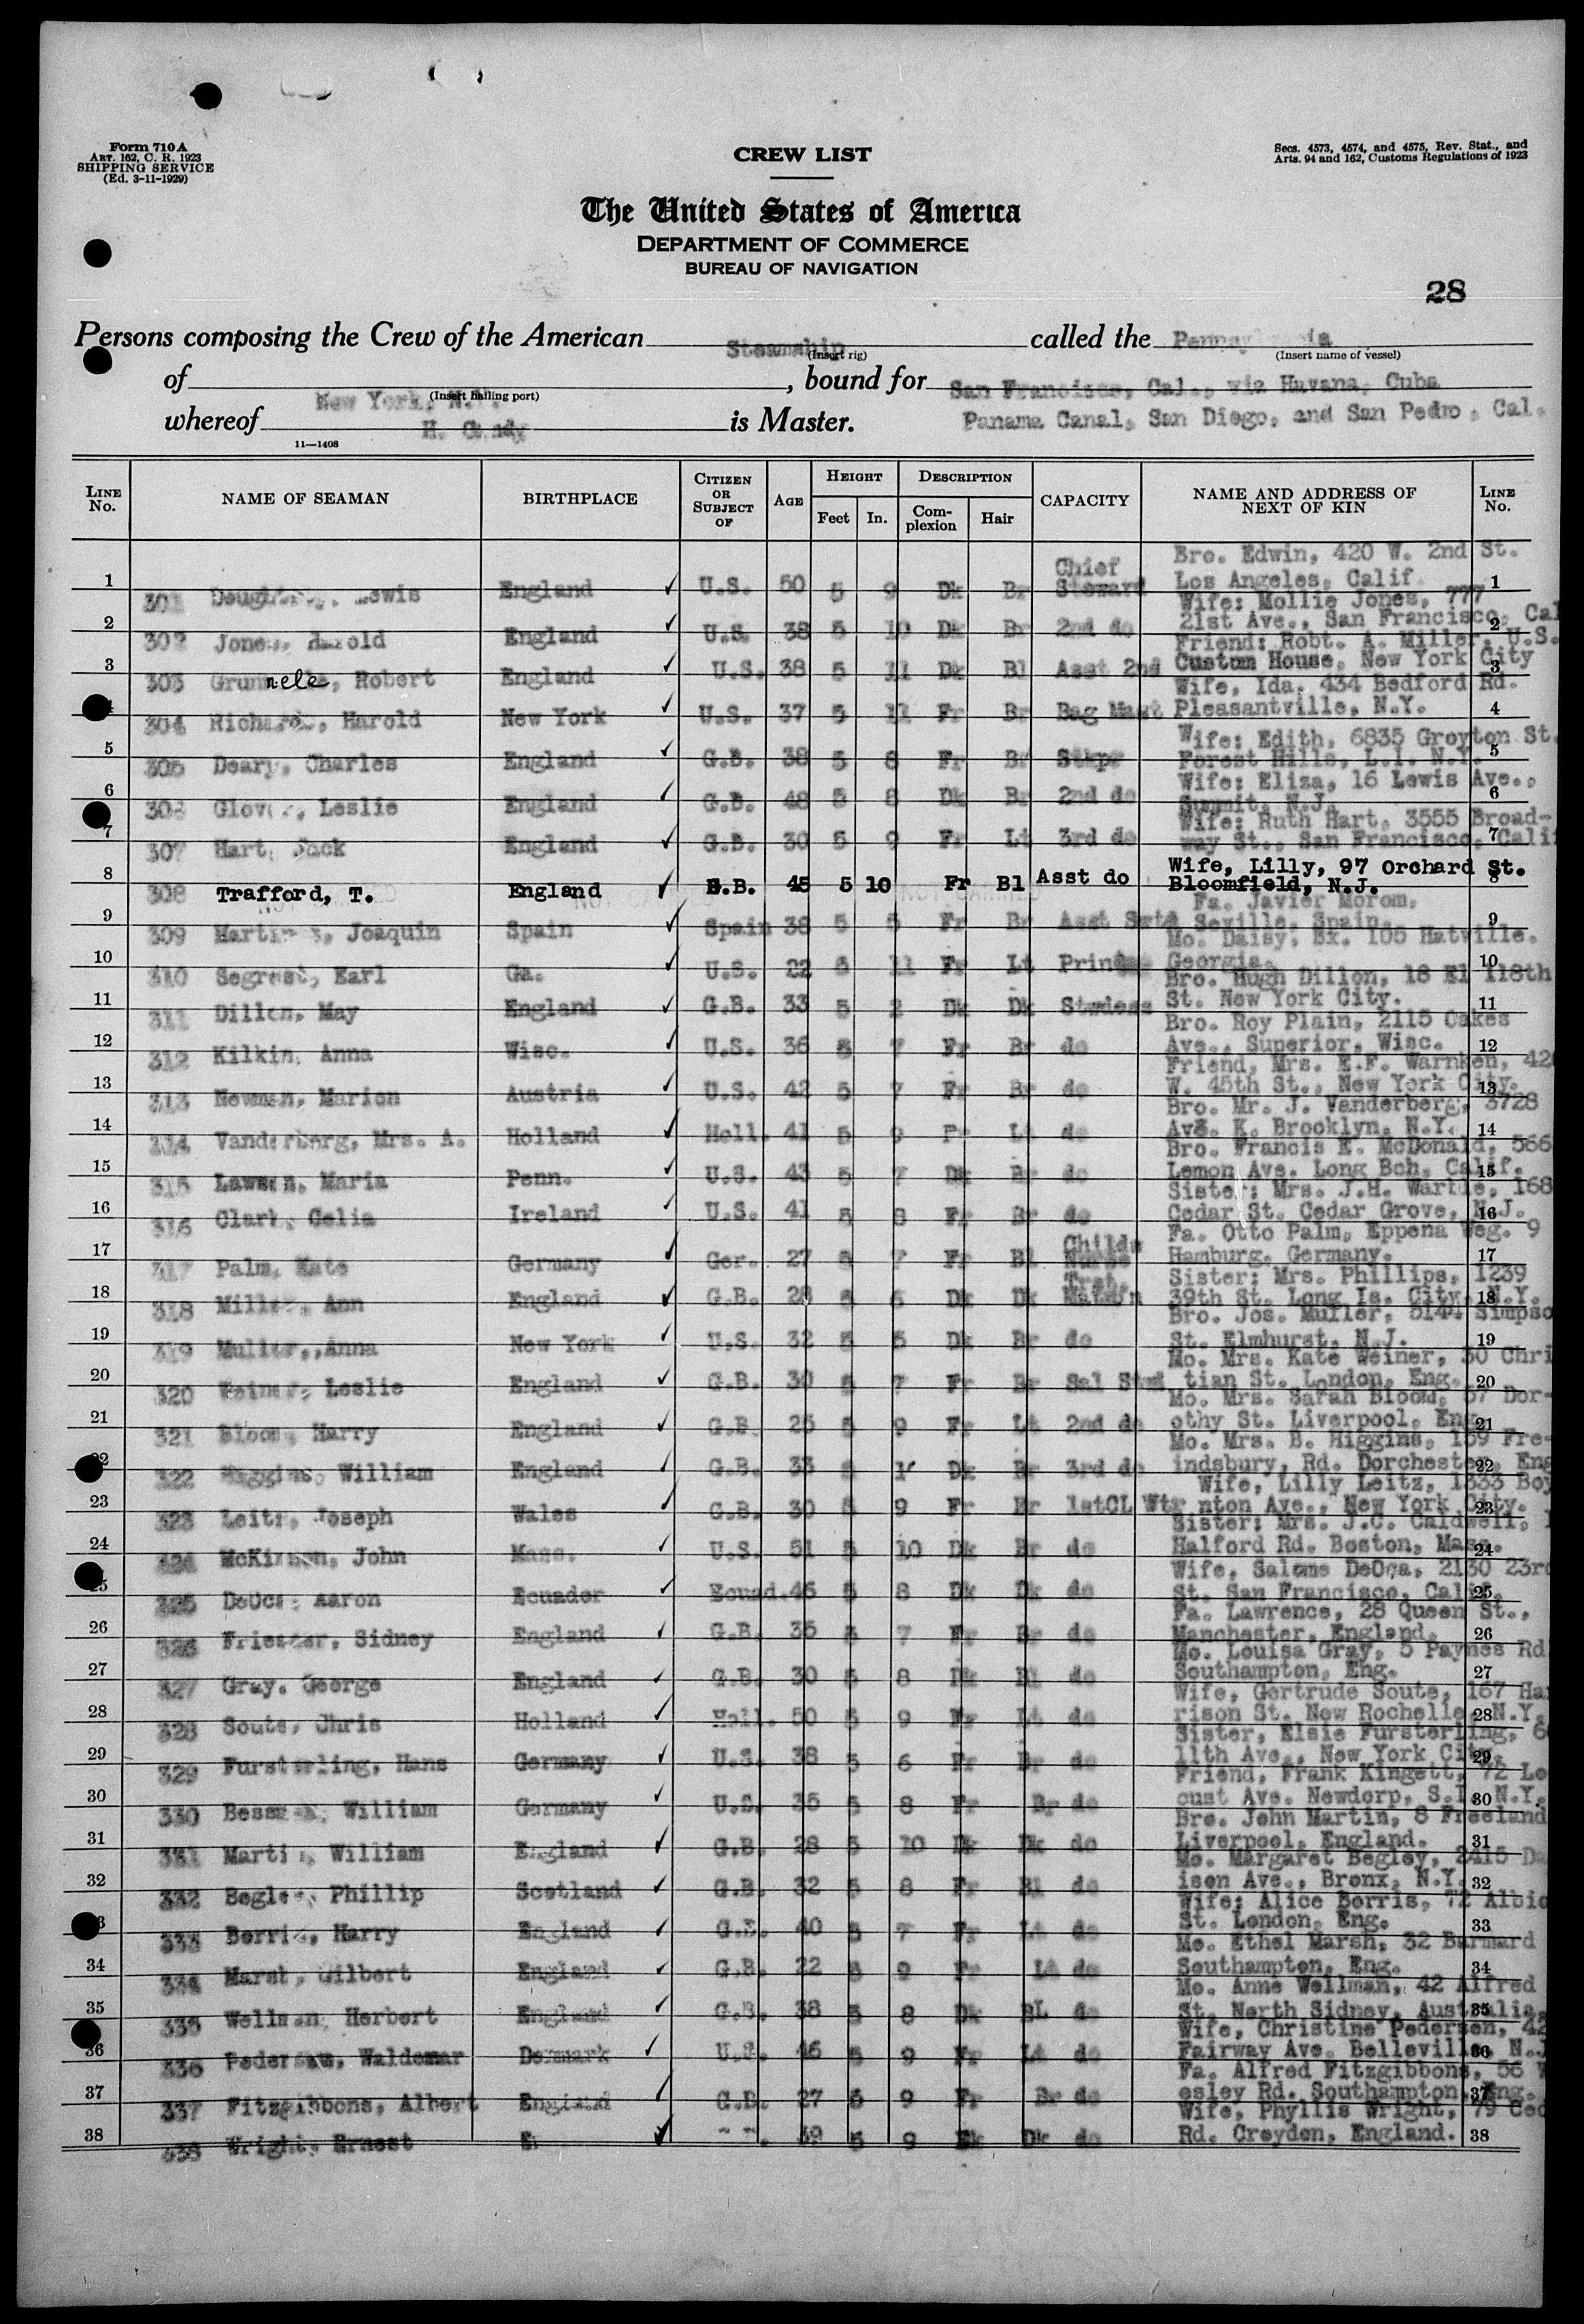 Form 710A
ART. 162, C. R. 1923
SHIPPING SERVICE
(Ed. 3-11-1929)
CREW LIST
Secs. 4573, 4574, and 4575, Rev. Stat., and
Arts. 94 and 162, Customs Regulations of 1923
The United States of America
DEPARTMENT OF COMMERCE
BUREAU OF NAVIGATION
28
Persons composing the Crew of the American Steamship called the Pennsylvania
(Insert rig) (Insert name of vessel)
of New York, N.Y., bound for San Francisco, Cal., via Havana, Cuba
(Insert hailing port)
whereof H. is Master. Panama Canal, San Diego, and San Pedro, Cal.
11—1408
LINE No. NAME OF SEAMAN BIRTHPLACE CITIZEN OR SUBJECT OF AGE HEIGHT Feet In. DESCRIPTION Complexion Hair CAPACITY NAME AND ADDRESS OF NEXT OF KIN LINE No.
Bro. Edwin, 420 W. 2nd St.
1 301 Lewis England ✓ U.S. 50 5 9 Dk Br Chief Steward Los Angeles, Calif. 1
Wife: Mollie Jones, 777
2 302 Jones, Harold England ✓ U.S. 38 5 10 Dk Br 2nd do 21st Ave., San Francisco, Cal 2
Friend: Robt. A. Miller, U.S.
3 303 nele, Robert England ✓ U.S. 38 5 11 Dk Bl Asst 2nd Custom House, New York City 3
Wife, Ida. 434 Bedford Rd.
304 Richards, Harold New York ✓ U.S. 37 5 11 Fr Br Bag Mast Pleasantville, N.Y. 4
Wife: Edith, 6835 Groyton St.
5 305 Deary, Charles England ✓ G.B. 38 5 8 Fr Br Stkpr Forest Hills, L.I. N.Y. 5
Wife: Eliza, 16 Lewis Ave.,
6 306 Glover, Leslie England ✓ G.B. 48 5 8 Dk Br 2nd do Summit, N.J. 6
Wife: Ruth Hart, 3555 Broad-
7 307 Hart, Jack England ✓ G.B. 30 5 9 Fr Lt 3rd do way St., San Francisco, Calif 7
Wife, Lilly, 97 Orchard St.
8 308 Trafford, T. England ✓ G.B. 45 5 10 Fr Bl Asst do Bloomfield, N.J. 8
Fa. Javier Morom,
9 309 Martinez, Joaquin Spain ✓ Spain 38 5 5 Fr Br Asst Seville, Spain. 9
Mo. Daisy, Bx. 105 Hatville.
10 310 Segrest, Earl Ga. ✓ U.S. 22 5 11 Fr Lt Georgia. 10
Bro. Hugh Dillon, 18 El 118th
11 311 Dillon, May England ✓ G.B. 33 5 2 Dk Dk Stwdess St. New York City. 11
Bro. Roy Plain, 2115 Oakes
12 312 Kilkin, Anna Wisc. ✓ U.S. 36 5 7 Fr Br do Ave., Superior, Wisc. 12
Friend, Mrs. E.F. Warnken, 42
13 313 Newman, Marion Austria ✓ U.S. 42 5 7 Fr Br do W. 45th St., New York City. 13
Bro. Mr. J. Vanderberg, 3728
14 314 Vanderberg, Mrs. A. Holland ✓ Holl. 41 5 9 Fr Lt do Ave. K. Brooklyn. N.Y. 14
Bro. Francis E. McDonald, 566
15 315 Lawson, Maria Penn. ✓ U.S. 43 5 7 Dk Br do Lemon Ave. Long Bch. Calif. 15
Sister: Mrs. J.H. 168
16 316 Clark, Celia Ireland ✓ U.S. 41 5 8 Fr Br do Cedar St. Cedar Grove, N.J. 16
Fa. Otto Palm, Eppena Weg. 9
17 317 Palm, Kate Germany ✓ Ger. 27 5 7 Fr Bl Childs Nurse Hamburg. Germany. 17
Sister: Mrs. Phillips, 1239
18 318 Miller, Ann England ✓ G.B. 28 5 5 Dk Dk Matron 39th St. Long Is. City. N.Y. 18
Bro. Jos. Muller, Simpso
19 319 Muller, Anna New York ✓ U.S. 32 5 5 Dk Br do St. Elmhurst, N.J. 19
Mo. Mrs. Kate Weiner, 30 Chri
20 320 Weiner, Leslie England ✓ G.B. 30 5 7 Fr Br Sal Stwd tian St. London, Eng. 20
Mo. Mrs. Sarah Bloom, 57 Dor-
21 321 Bloom, Harry England ✓ G.B. 25 5 9 Fr Lt 2nd do othy St. Liverpool, Eng 21
Mo. Mrs. B. Higgins, 159 Fre-
22 322 Higgins, William England ✓ G.B. 33 5 Dk Br 3rd do indsbury, Rd. Dorchester, Eng 22
Wife, Lilly Leitz, 1333 Boy
23 323 Leitz, Joseph Wales ✓ G.B. 30 5 9 Fr Br 1stCL Wtr nton Ave., New York City. 23
Sister: Mrs. J.C. Caldwell,
24 324 McKinnon, John Mass. ✓ U.S. 51 5 10 Dk Br do Halford Rd. Boston, Mass. 24
Wife, Salome DeOca, 2130 23rd
325 DeOca, Aaron Ecuador ✓ Ecuad. 46 5 8 Dk Dk do St. San Francisco, Calif. 25
Fa. Lawrence, 28 Queen St.,
26 326 Sidney England ✓ G.B. 35 5 7 Fr Br do Manchester, England. 26
Mo. Louisa Gray, 5 Paynes Rd
27 327 Gray, George England ✓ G.B. 30 5 8 Dk Bl do Southampton, Eng. 27
Wife, Gertrude Soute, 167 Har
28 328 Soute, Chris Holland ✓ Holl. 50 5 9 Fr Lt do rison St. New Rochelle, N.Y. 28
Sister, Elsie Fursterling,
29 329 Fursterling, Hans Germany ✓ U.S. 38 5 6 Fr Br do 11th Ave., New York City. 29
Friend, Frank Kingett, 72 Lo
30 330 William Germany ✓ U.S. 35 5 8 Fr Br do cust Ave. Newdorp, S.I. N.Y. 30
Bro. John Martin, 8 Freeland
31 331 Martin, William England ✓ G.B. 28 5 10 Dk Dk do Liverpool, England. 31
Mo. Margaret Begley, 2415 Da
32 332 Begley, Phillip Scotland ✓ G.B. 32 5 8 Fr Bl do ison Ave., Bronx, N.Y. 32
Wife: Alice Berris, 72 Albio
333 Berris, Harry England ✓ G.B. 40 5 7 Fr Lt do St. London, Eng. 33
Mo. Ethel Marsh, 32 Burnard
34 334 Marsh, Gilbert England ✓ G.B. 22 5 9 Fr Lt do Southampton, Eng. 34
Mo. Anne Wellman, 42 Alfred
35 335 Wellman, Herbert England ✓ G.B. 38 5 8 Dk BL do St. North Sidney, Australia. 35
Wife, Christine Pedersen, 42
36 336 Pedersen, Waldemar Denmark ✓ U.S. 46 5 9 Fr Lt do Fairway Ave. Belleville, N.J 36
Fa. Alfred Fitzgibbons, 56 W
37 337 Fitzgibbons, Albert England ✓ G.B. 27 5 9 Fr Br do esley Rd. Southampton, Eng. 37
Wife, Phyllis Wright, 79 Ced
38 338 Wright, Ernest ✓ 39 5 9 Dk Dk do Rd. Croydon, England. 38